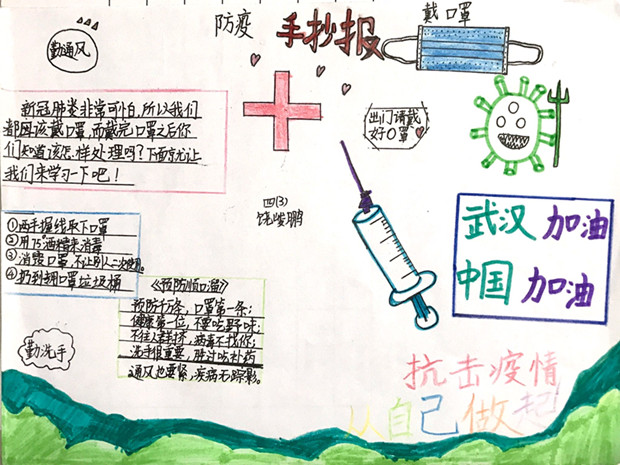 防疫 手抄报
戴口罩
勤通风
新冠肺炎非常可怕,所以我们
都因该戴口罩,而戴完口罩之后你
们知道该怎样处理吗?下面就让
我们来学习一下吧!
出门请戴
好口罩
四(3)
①两手提线取下口罩
②用75°酒精来消毒
③消毁口罩,不让别人二次使用。
④扔到拥口罩垃圾桶
武汉 加油
中国 加油
《预防顺口溜》
预防千万条,口罩第一条;
健康第一位,不要吃野味;
不往人群挤,病毒不找你;
洗手很重要,胜过吃补药
通风也要紧,疾病无踪影。
勤洗手
抗击疫情
从自己做起